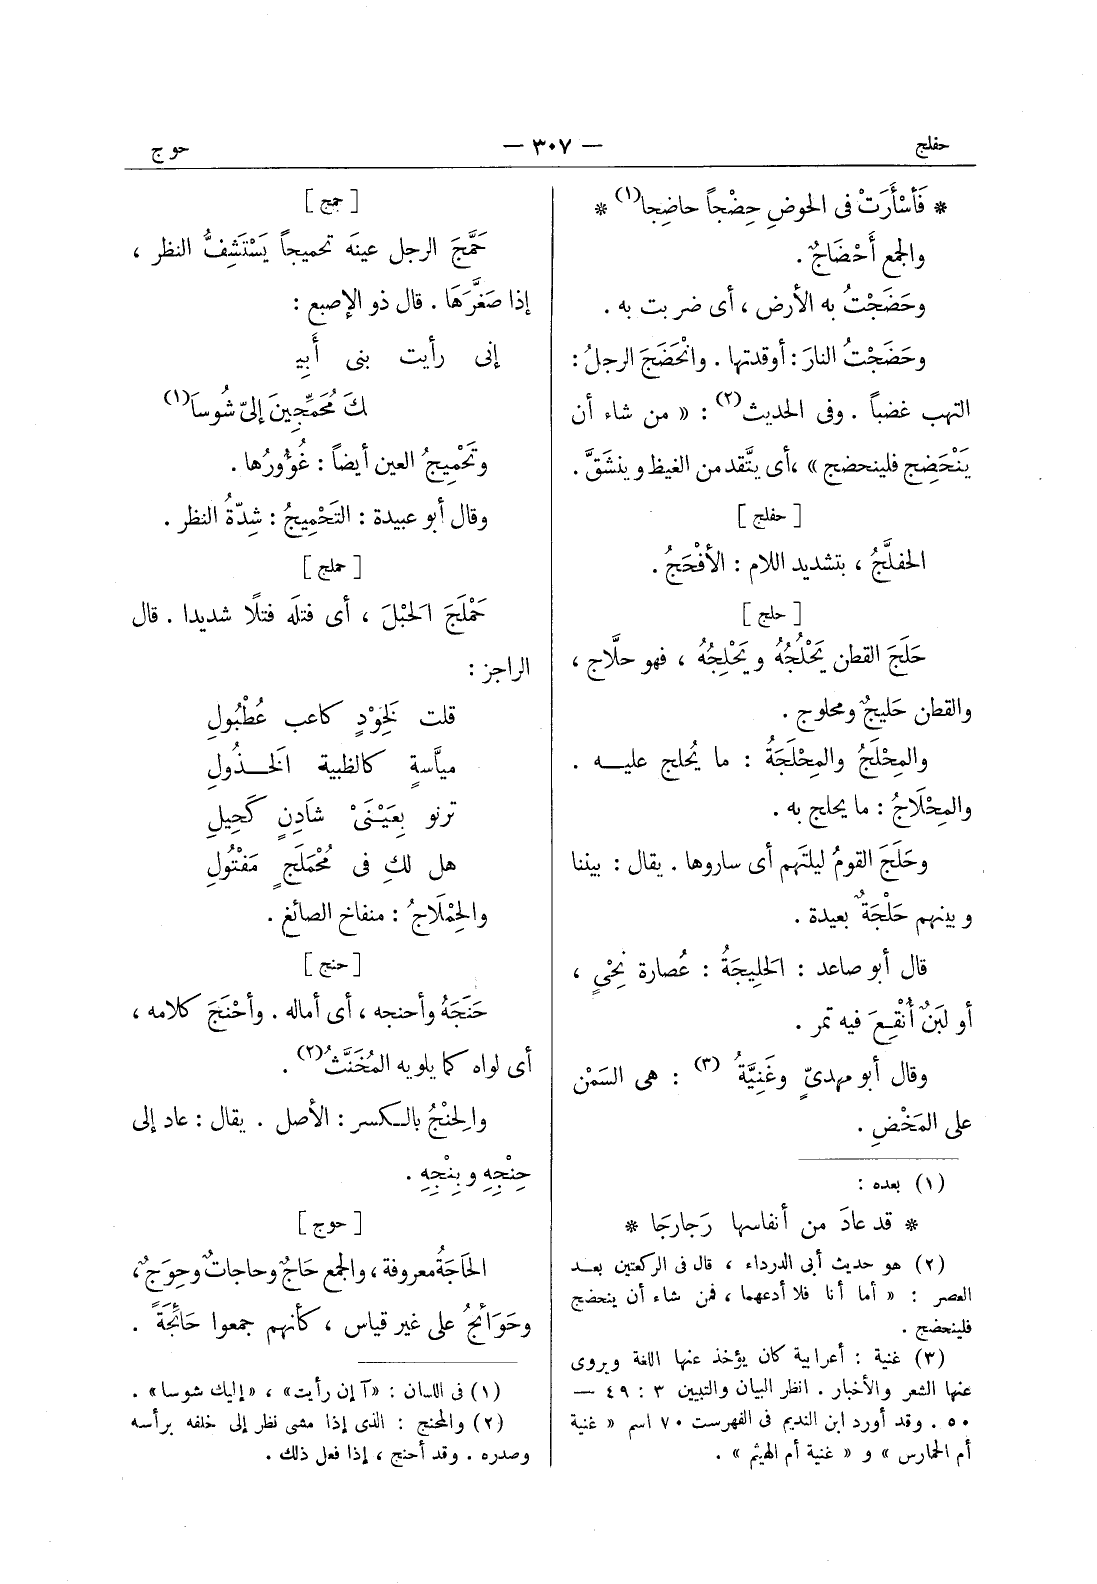 حفلج
— ٣٠٧ —
حوج
* فَأَسْأَرَتْ فى الحوضِ حِضْجاً حاضِجا(١) *
والجمع أَحْضَاجٌ .
وحَضَجْتُ به الأرض ، أى ضربت به .
وحَضَجْتُ النارَ : أوقدتها . وانْحَضَجَ الرجلُ :
التهب غضباً . وفى الحديث(٢) : « من شاء أن
يَنْحَضِج فلينحضج » ، أى يتَّقد من الغيظ وينشَقَّ .
[ حفلج ]
الحفلَّجُ ، بتشديد اللام : الأفْحَجُ .
[ حلج ]
حَلَجَ القطن يَحْلُجُهُ ويَحْلِجُهُ ، فهو حلَّاج ،
والقطن حَليجٌ ومحلوج .
والمِحْلَجُ والمِحْلَجَةُ : ما يُحلج عليه .
والمِحْلَاجُ : ما يحلج به .
وحَلَجَ القومُ ليلتَهم أى ساروها . يقال : بيننا
وبينهم حَلْجَةٌ بعيدة .
قال أبو صاعد : الحَلِيجَةُ : عُصارة نِحْيٍ ،
أو لبَنٌ أُنْقِعَ فيه تمر .
وقال أبو مهدىٍّ وغَنِيَّةُ (٣) : هى السَمْن
على المَخْضِ .
(١) بعده :
* قد عادَ من أنفاسها رَجارِجَا *
(٢) هو حديث أبى الدرداء ، قال فى الركعتين بعد
العصر : « أما أنا فلا أدعهما ، فمن شاء أن ينحضج
فلينحضج .
(٣) غنية : أعرابية كان يؤخذ عنها اللغة ويروى
عنها الشعر والأخبار . انظر البيان والتبيين ٣ : ٤٩ —
٥٠ . وقد أورد ابن النديم فى الفهرست ٧٠ اسم « غنية
أم الحمارس » و « غنية أم الهيثم » .
[ حمج ]
حَمَّجَ الرجل عينَه تحميجاً يَسْتَشِفُّ النظر ،
إذا صَغَّرَهَا . قال ذو الإصبع :
إنى رأيت بنى أَبِيـ
ـكَ مُحَمِّجِينَ إلىّ شُوسَا(١)
وتَحْمِيجُ العين أيضاً : غُؤُورُها .
وقال أبو عبيدة : التَحْمِيجُ : شِدّةُ النظر .
[ حملج ]
حَمْلَجَ الحَبْلَ ، أى فتلَه فتلًا شديدا . قال
الراجز :
قلت لِخَوْدٍ كاعب عُطْبُولِ
ميأسةٍ كالظبية الخَذُولِ
ترنو بِعَيْنَىْ شادِنٍ كَحِيلِ
هل لكِ فى مُحَمْلَجٍ مَفْتُولِ
والحِمْلَاجُ : منفاخ الصائغ .
[ حنج ]
حَنَجَهُ وأحنجه ، أى أماله . وأحْنَجَ كلامه ،
أى لواه كما يلويه المُخَنَّثُ(٢) .
والحِنْجُ بالكسر : الأصل . يقال : عاد إلى
حِنْجِهِ وبِنْجِهِ .
[ حوج ]
الحَاجَةُ معروفة ، والجمع حَاجٌ وحاجاتٌ وحِوَجٌ ،
وحَوَائجُ على غير قياس ، كأنهم جمعوا حَائِجَةً .
(١) فى اللسان : «آ إن رأيت» ، «إليك شوسا» .
(٢) والمحنج : الذى إذا مشى نظر إلى خلفه برأسه
وصدره . وقد أحنج ، إذا فعل ذلك .